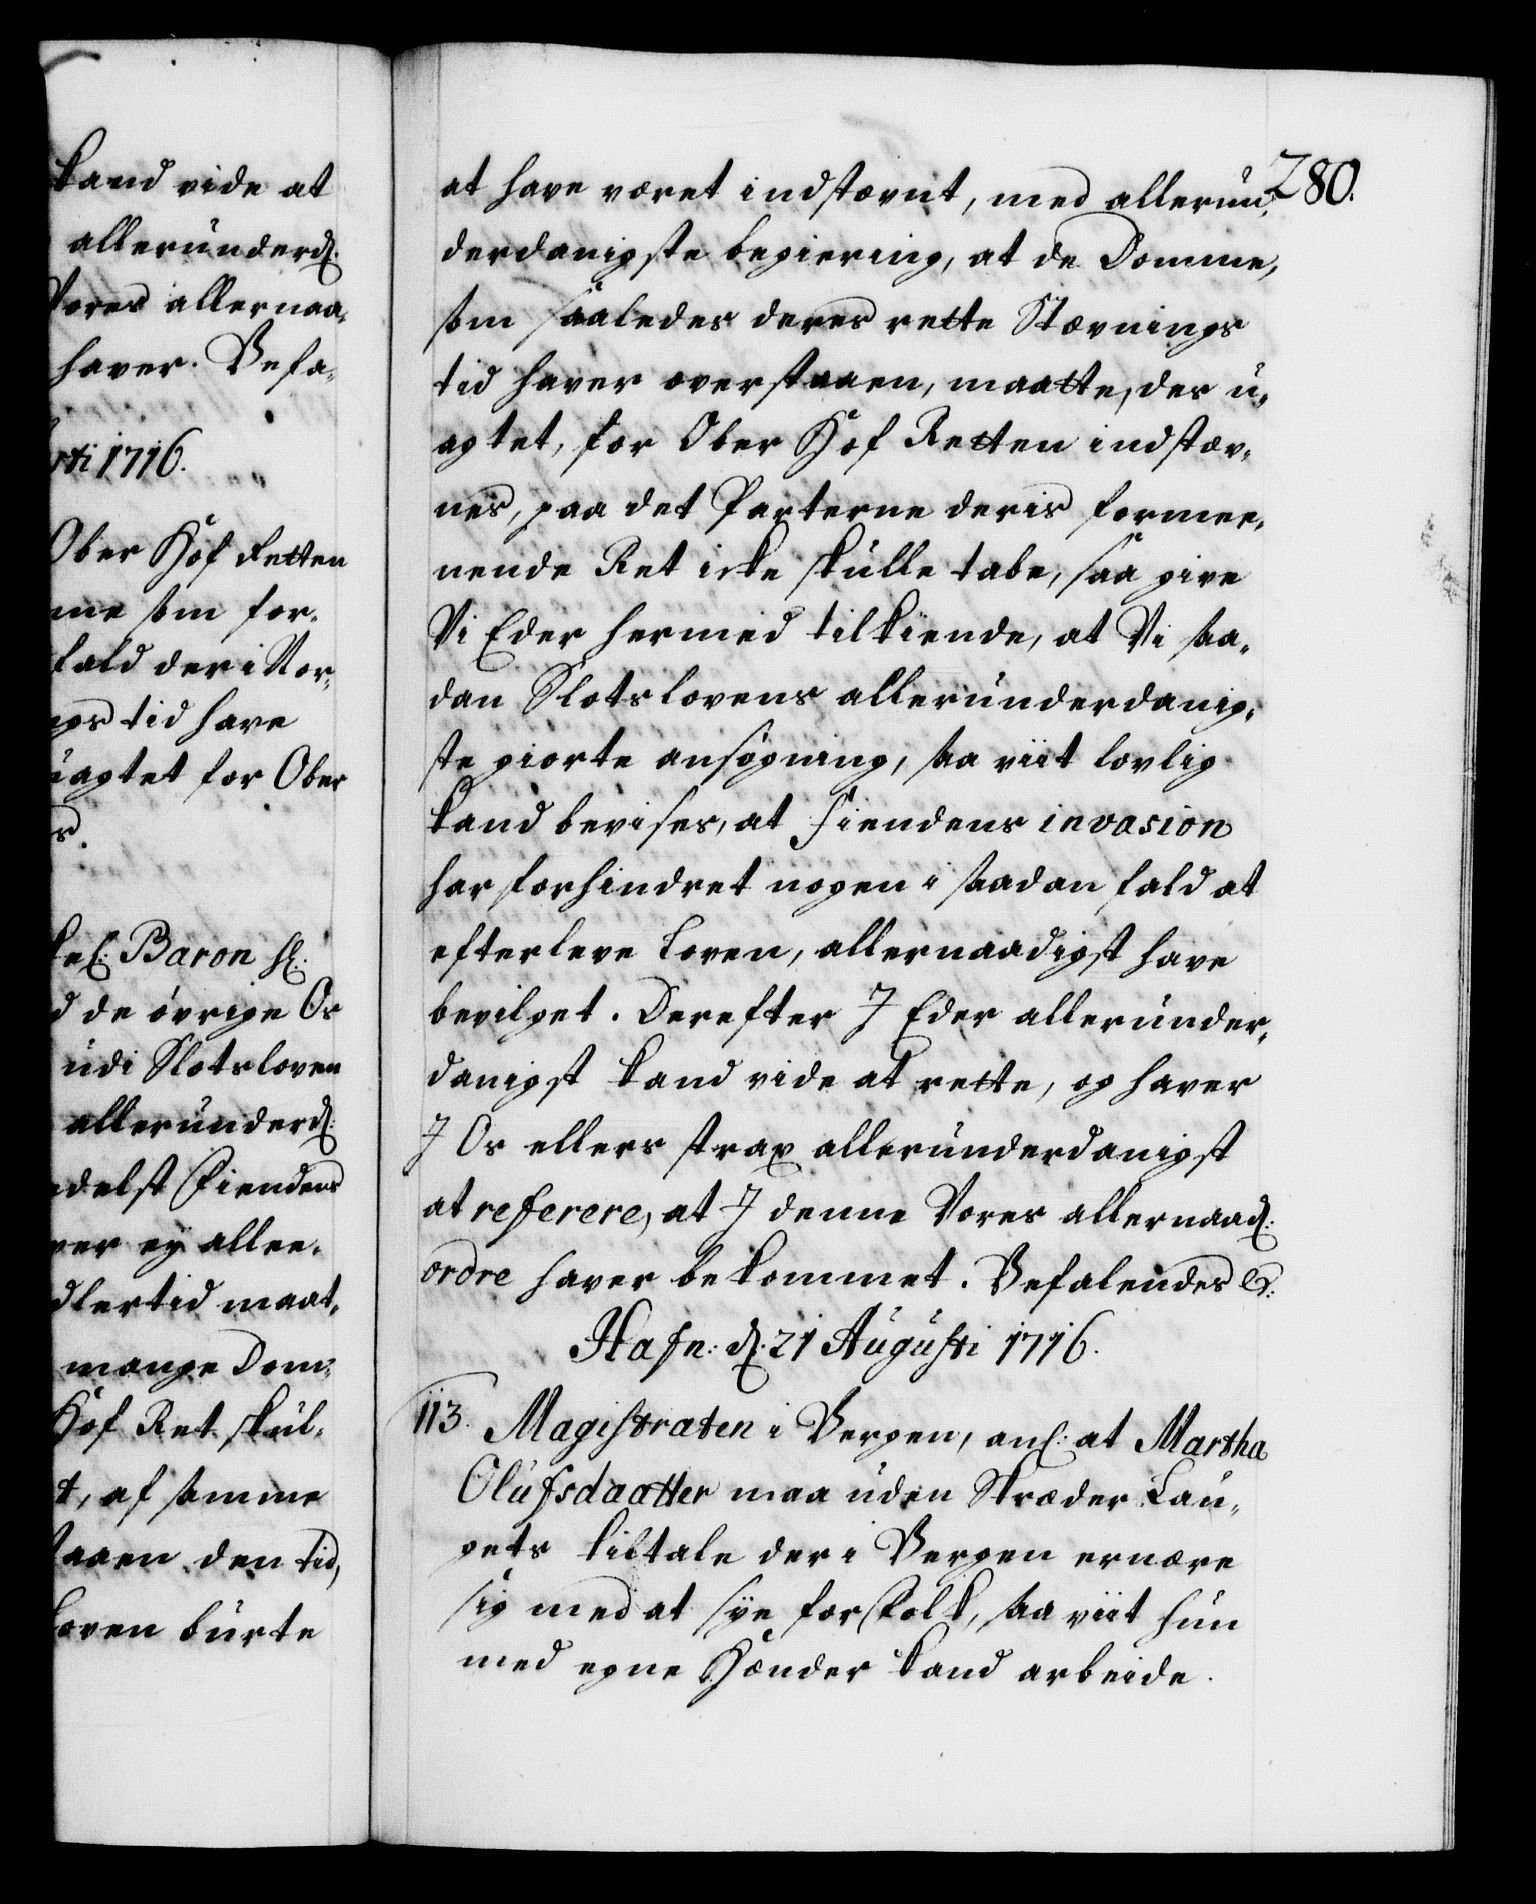 kand vide at
allerunderd:
Vores allernaa-
haver. Befa-
rti 1716.
Ober Hof Retten
me som for-
fald der i Nor-
ngs tid have
uagtet for Ober
s.
Bel: Baron H:
d de övrige Os
udi Slotsloven
allerunderd:
edelst Fiendens
ver ey allee-
dlertid maat-
mange Dom-
Hof Ret skul-
t, af samme
taaen den tid,
Loven burte
280.
at have været indstævnt, med allerun-
derdanigste begiering, at de Domme,
som saaledes deres rette Stævnings
tid haver overstaaen, maatte, des u-
agtet, for Ober Hof Retten indstæv-
nes, paa det Parterne deris formee-
nende Ret icke skulle tabe, saa give
Vi Eder hermed tilkiende, at Vi saa-
dan Slotslovens allerunderdanig-
ste giorte ansögning, saa viit lovlig
kand bevises, at Fiendens invasion
har forhindret nogen i saadan fald at
efterleve Loven, allernaadigst have
bevilget. Derefter I Eder allerunder-
danigst kand vide at rette, og haver
I Os ellers strax allerunderdanigst
at referere, at I denne Vores allernaad:
ordre haver bekommet. Befalendes &:
Hafn: d: 21 Augusti 1716.
113. Magistraten i Bergen, anl: at Martha
Olufsdaatter maa uden Skræder Lau-
gets tiltale der i Bergen ernære
sig med at sye for folk, saa viit hun
med egne Hænder kand arbeide.